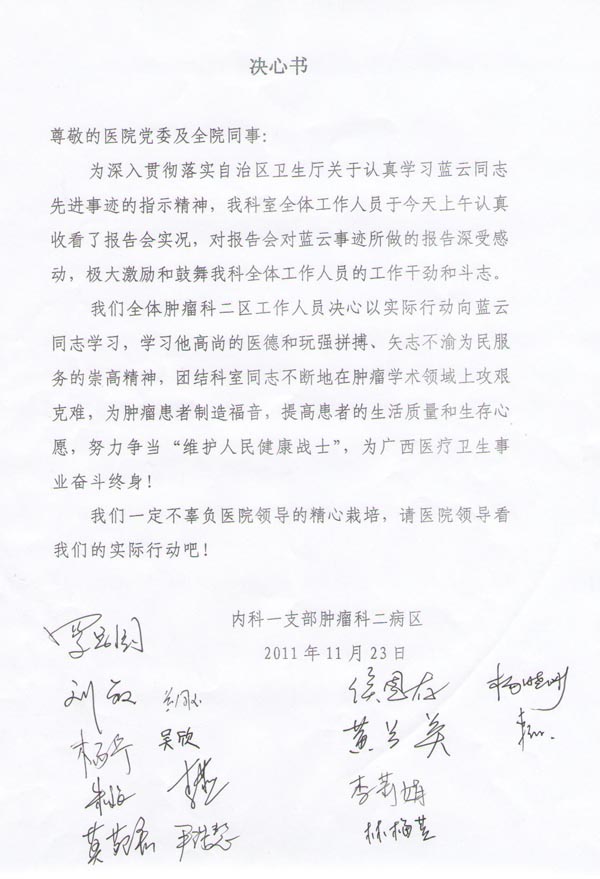 决心书
尊敬的医院党委及全院同事：
为深入贯彻落实自治区卫生厅关于认真学习蓝云同志
先进事迹的指示精神，我科室全体工作人员于今天上午认真
收看了报告会实况，对报告会对蓝云事迹所做的报告深受感
动，极大激励和鼓舞我科全体工作人员的工作干劲和斗志。
我们全体肿瘤科二区工作人员决心以实际行动向蓝云
同志学习，学习他高尚的医德和玩强拼搏、矢志不渝为民服
务的崇高精神，团结科室同志不断地在肿瘤学术领域上攻艰
克难，为肿瘤患者制造福音，提高患者的生活质量和生存心
愿，努力争当“维护人民健康战士”，为广西医疗卫生事
业奋斗终身！
我们一定不辜负医院领导的精心栽培，请医院领导看
我们的实际行动吧！
内科一支部肿瘤科二病区
2011 年 11 月 23 日
刘敏
吴欣
黄兰英
李莉娟
林梅芸